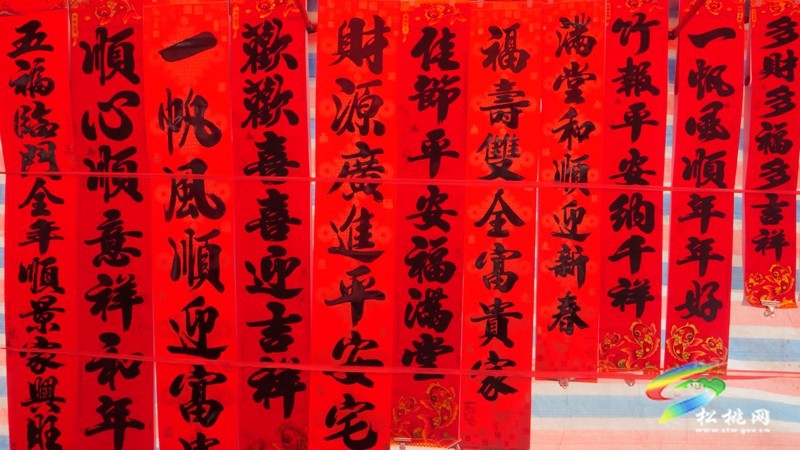 五福臨門全年順景家興旺
順心順意祥和年
一帆風順迎富貴
歡歡喜喜迎吉祥
財源廣進平安宅
佳節平安福滿堂
福壽雙全富貴家
滿堂和順迎新春
竹報平安納千祥
一帆風順年年好
多財多福多吉祥
松桃网